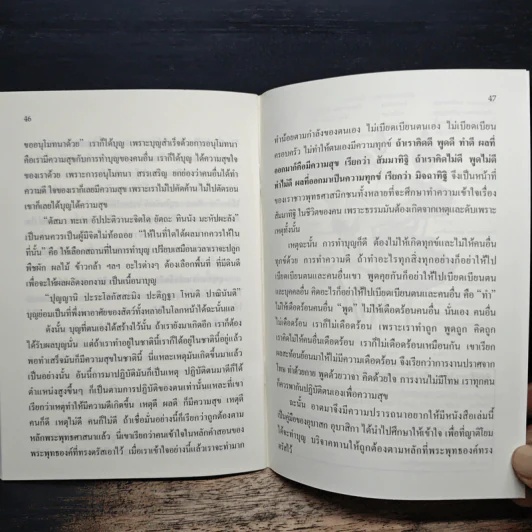 46
ขออนุโมทนาด้วย” เราก็ได้บุญ เพราะบุญสำเร็จด้วยการอนุโมทนา
คือเรามีความสุขกับการทำบุญของคนอื่น เราก็ได้บุญ ได้ความสุขใจ
ของเราด้วย เพราะการอนุโมทนา สรรเสริญ ยกย่องว่าคนอื่นได้ทำ
ความดี ใจของเราก็เลยมีความสุข เพราะเราไม่ไปคัดค้าน ไม่ไปตัดรอน
เขาก็เลยได้บุญได้ความสุข
“ตัสมา ทะเท อัปปะติวานะจิตโต ยัตถะ ทินนัง มะหัปผะลัง”
เป็นคนควรเป็นผู้มีจิตไม่ท้อถอย “ให้ในที่ใดได้ผลมากควรให้ใน
ที่นั้น” คือ ให้เลือกสถานที่ในการทำบุญ เปรียบเสมือนเวลาเราจะปลูก
พืชผัก ผลไม้ ข้าวกล้า ฯลฯ อะไรต่างๆ ต้องเลือกพื้นที่ ที่มีดินดี
เพื่อจะให้ผลผลิตงอกงาม เป็นเนื้อนาบุญ
“ปุญญานิ ปะระโลกัสสะมิง ปะติฏฐา โหนติ ปาณินันติ”
บุญย่อมเป็นที่พึ่งพาอาศัยของสัตว์ทั้งหลายในโลกหน้าได้ฉะนั้นแล
ดังนั้น บุญที่ตนเองได้สร้างไว้นั้น ถ้าเรายังมาเกิดอีก เราก็ต้อง
ได้รับผลบุญนั้น แต่ถ้าเราทำอยู่ในชาตินี้เราก็ได้อยู่ในชาตินี้อยู่แล้ว
พอทำเสร็จมันก็มีความสุขในชาตินี้ นี่แหละเหตุมันเกิดขึ้นมาแล้ว
เป็นอย่างนั้น อันนี้การมาปฏิบัติมันก็เป็นเหตุ ปฏิบัติตนมาดีก็ได้
ตำแหน่งสูงขึ้นๆ ก็เป็นตามการปฏิบัติของตนเท่านั้นแหละที่เขา
เรียกว่าเหตุทำให้มีความดีเกิดขึ้น เหตุดี ผลดี ก็มีความสุข เหตุดี
คนก็ดี เหตุไม่ดี คนก็ไม่ดี ถ้าเชื่อมั่นอย่างนี้ก็เรียกว่าถูกต้องตาม
หลักพระพุทธศาสนาแล้ว นี่เขาเรียกว่าคนเข้าใจในหลักคำสอนของ
พระพุทธองค์ที่ทรงตรัสเอาไว้ เมื่อเราเข้าใจอย่างนี้แล้วเราจะทำมาก
47
ทำน้อยตามกำลังของตนเอง ไม่เบียดเบียนตนเอง ไม่เบียดเบียน
ครอบครัว ไม่ทำให้ตนเองมีความทุกข์ ถ้าเราคิดดี พูดดี ทำดี ผลที่
ออกมาก็คือมีความสุข เรียกว่า สัมมาทิฐิ ถ้าเราคิดไม่ดี พูดไม่ดี
ทำไม่ดี ผลที่ออกมาเป็นความทุกข์ เรียกว่า มิจฉาทิฐิ จึงเป็นหน้าที่
ของเราชาวพุทธศาสนิกชนทั้งหลายที่จะศึกษาทำความเข้าใจเรื่อง
สัมมาทิฐิ ในชีวิตของคน เพราะธรรมมันต้องเกิดจากเหตุและดับเพราะ
เหตุทั้งนั้น
เหตุฉะนั้น การทำบุญก็ดี ต้องไม่ให้เกิดทุกข์และไม่ให้คนอื่น
ทุกข์ด้วย การทำความดี ถ้าทำอะไรทุกสิ่งทุกอย่างก็อย่าให้ไป
เบียดเบียนตนและคนอื่นเขา พูดคุยกันก็อย่าให้ไปเบียดเบียนตน
และบุคคลอื่น คิดอะไรก็อย่าให้ไปเบียดเบียนตนและคนอื่น คือ “ทำ”
ไม่ให้เดือดร้อนคนอื่น “พูด” ไม่ให้เดือดร้อนคนอื่น นั่นเอง คนอื่น
ไม่เดือดร้อน เราก็ไม่เดือดร้อน เพราะเราทำถูก พูดถูก คิดถูก
เราคิดไม่ให้คนอื่นเดือดร้อน เราก็ไม่เดือดร้อนเหมือนกัน เขาเรียก
ผลสะท้อนย้อนมาให้ไม่มีความเดือดร้อน จึงเรียกว่าการงานปราศจาก
โทษ ทำด้วยกาย พูดด้วยวาจา คิดด้วยใจ การงานไม่มีโทษ เราทุกคน
ก็ควรพากันปฏิบัติตนเองเพื่อความสุข
ฉะนั้น อาตมาจึงมีความปรารถนาอยากให้มีหนังสือเล่มนี้
เป็นคู่มือของอุบาสก อุบาสิกา ได้นำไปศึกษาให้เข้าใจ เพื่อที่ญาติโยม
ได้จะทำบุญ บริจาคทานให้ถูกต้องตามหลักที่พระพุทธองค์ทรง
ตรัสไว้